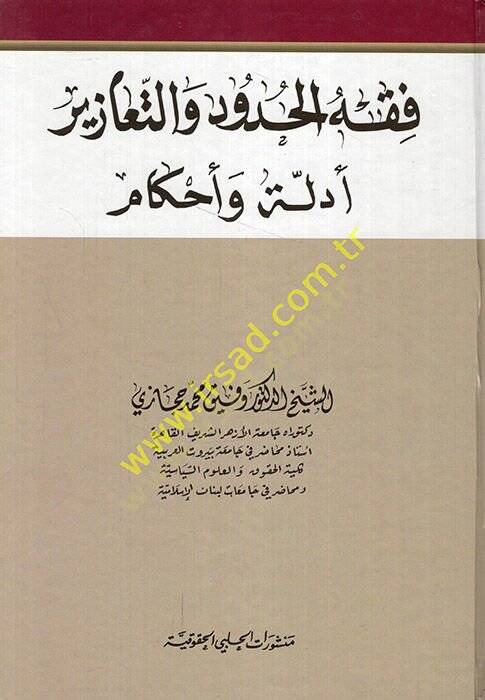 فِقْهُ الحُدُود وَالتَّعَازير
أدلة وَأحكام
الشيخ الدكتور وفيق محمد حجازي
دكتوراه جامعة الأزهر الشريف القاهرة
استاذ محاضر في جامعة بيروت العربية
كلية الحقوق والعلوم السياسية
ومحاضر في جامعات لبنان الإسلامية
www.irsad.com.tr
منشورات الحلبي الحقوقية